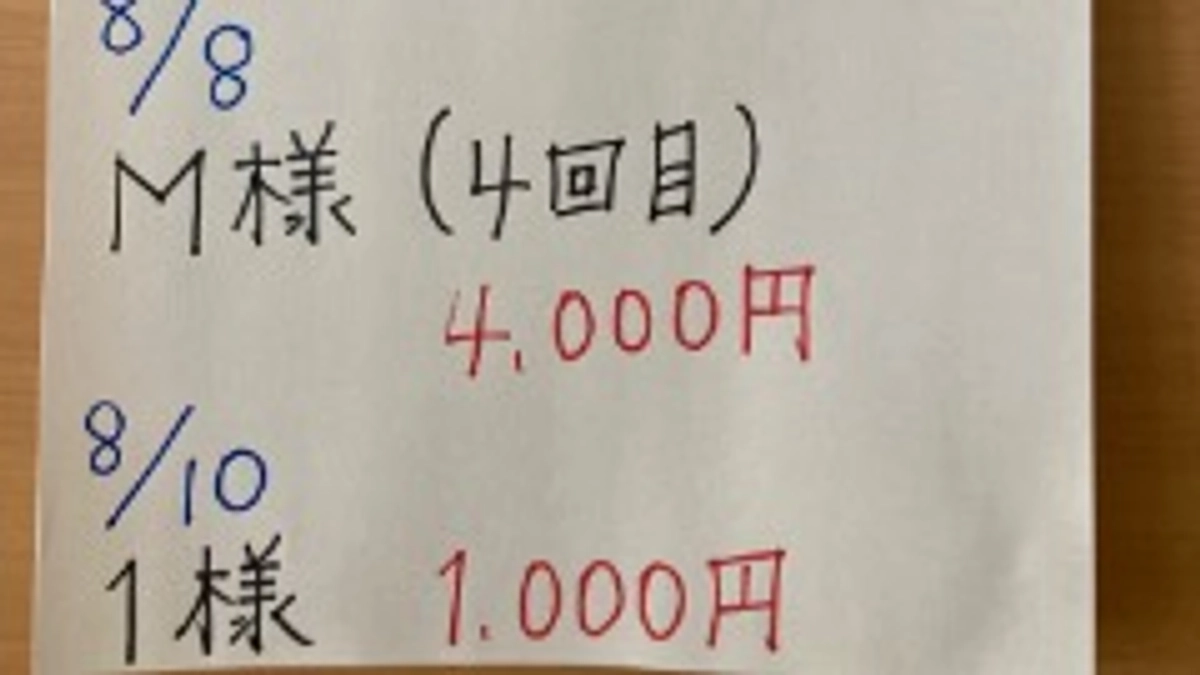 8/8
M様(4回目)
4.000円
8/10
1様 1.000円